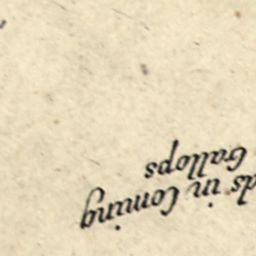 ds in Coming
Gallops